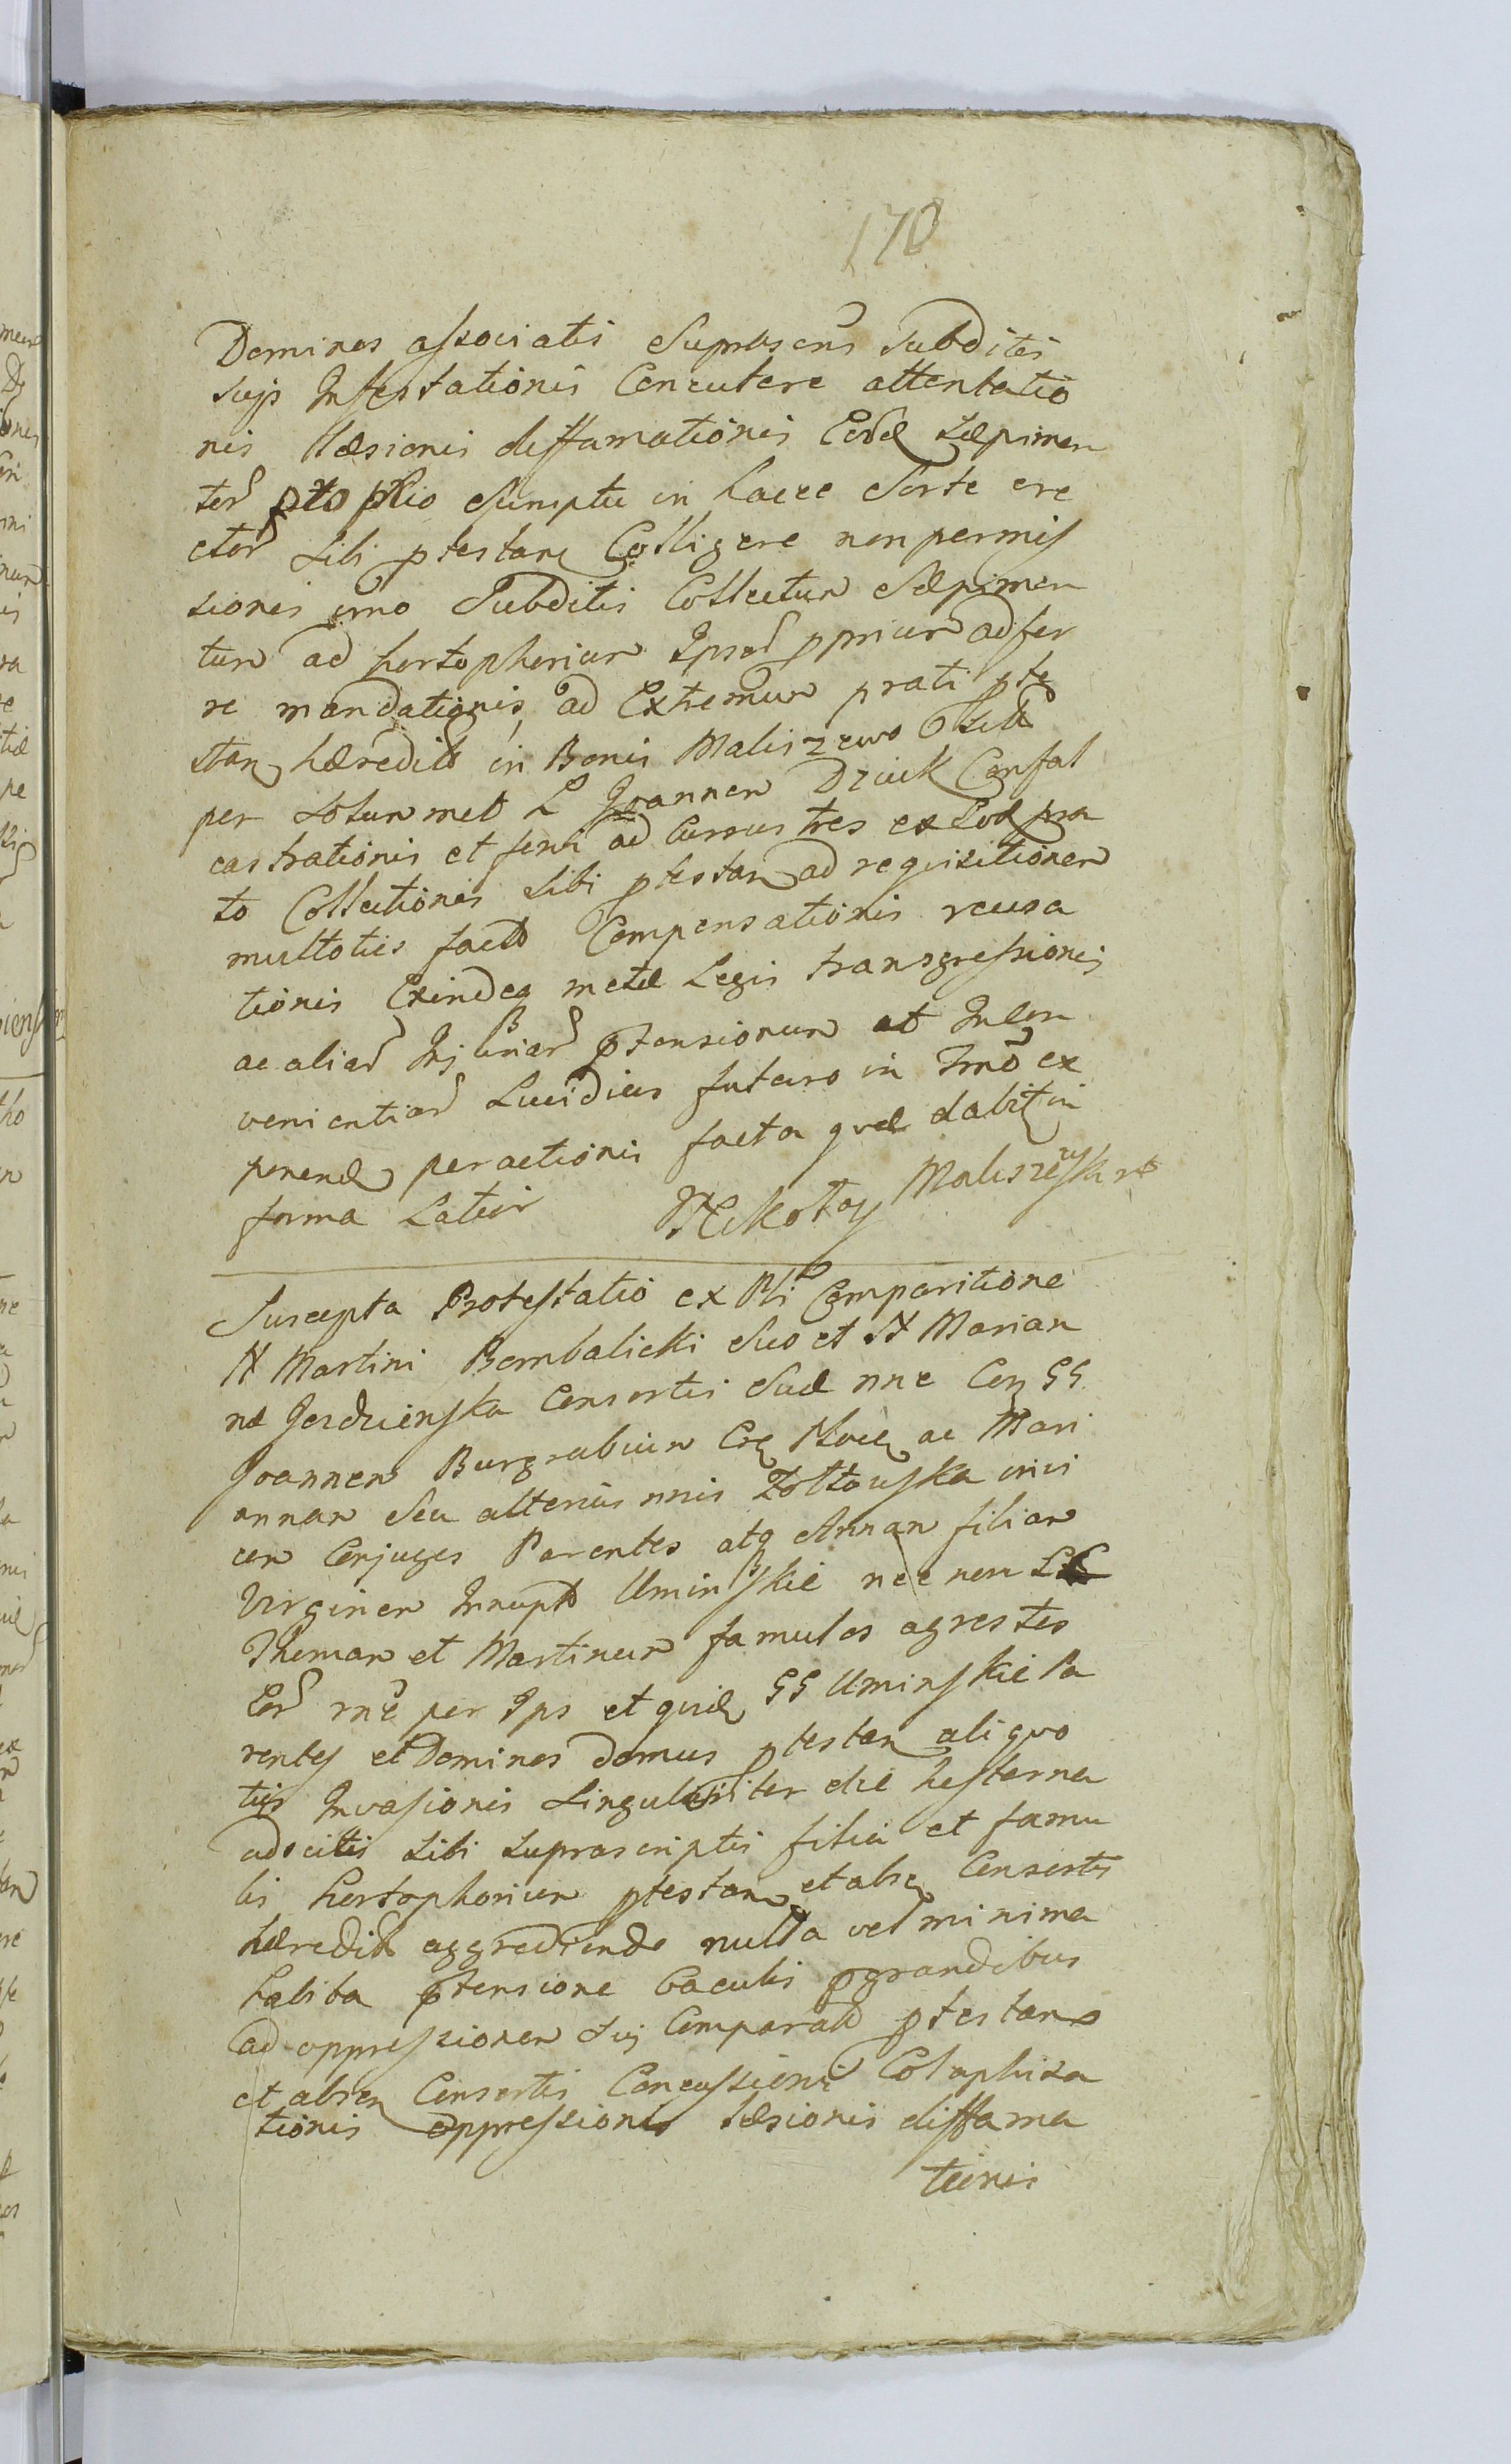 170
Dominos associatis Suprascris Subditis
sujs Infestationis Concutere attentatio
nis læsionis diffamationis Eodē Sæpimen
tor ptō prio Sumptu in hacce Sorte ere
ctor Sibi ptestan Colligere non permis
sionis imo Subditis Collectum Sæpimen
tum ad hortophorium Ipsor pprium adfer
re mandationis, ad Extremum prati pte
stan hæredit in Bonis Maliszewo
per totummet L Joannem Dziuk Confal
castrationis et feni ad Currus tres ex Eod pra
to Collectionis Sibi ptestan ad requisitionem
multoties fact Compensationis recusa
tionis Exindeq metæ Legis transgressionis
ac aliar Injuriar ptensionum et Incon
venientiar Lucidius futuro in Tmo ex
ponend peractionis facta quæ dabit in
forma Latiori Mikołay Maliszewski
Suscepta Protestatio ex Pli Comparitione
N Martini Bombalicki Suo et N Marian
næ Jerduienska Consortis Suæ nne Con GG
Joannem Burgrabium Cre ac Mari
annam Seu alterius nnis Zołtowska invi
cem Conjuges Parentes atq Annam filiam
Virginem Innupt Uminskie nec non LL
Thomam et Martinum famulos agrestes
Eor rne per Ips et quid GG Uminskie Pa
rentes et Dominos domus ptestan aliquo
ties Invasionis Singulariter die hesterna
adscitis Sibi Suprascriptis filia et famu
lis hortophorium ptestan et absen Consortis
hæredit aggrediendo nulla vel minima
habita ptensione baculis pgrandibus
ad oppressionem Suj Comparat ptestans
et absen Consortis Concussionis Colaphisa
tionis oppressionis læsionis diffama
tionis